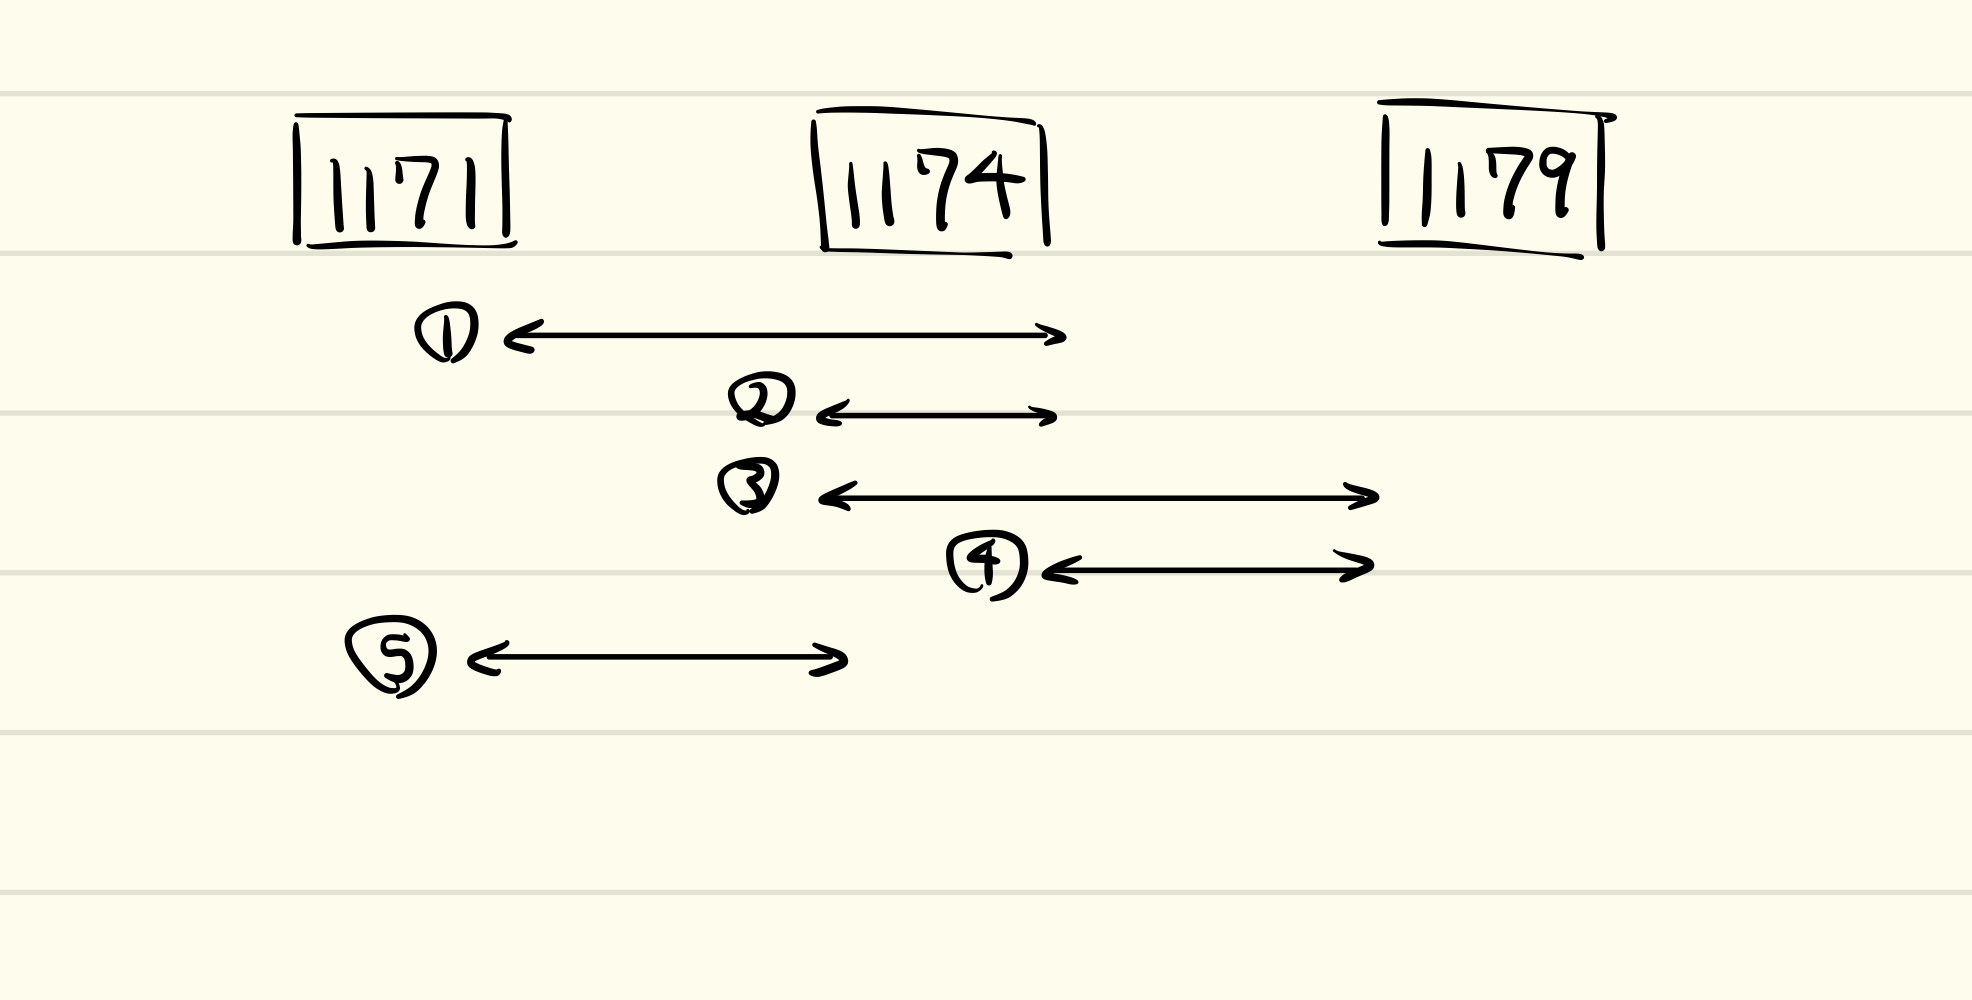 1171 1174 1179
①
②
③
④
⑤